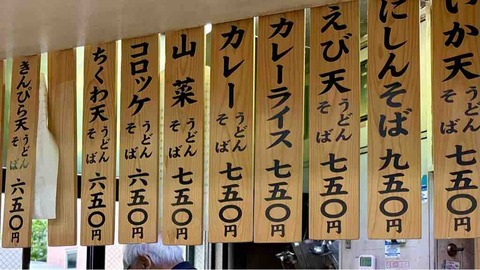 いか天うどんそば 七五〇円
にしんそば 九五〇円
えび天うどんそば 七五〇円
カレーライス 七五〇円
カレーうどんそば 七五〇円
山菜うどんそば 七五〇円
コロッケうどんそば 六五〇円
ちくわ天うどんそば 六五〇円
きんぴら天うどんそば 六五〇円